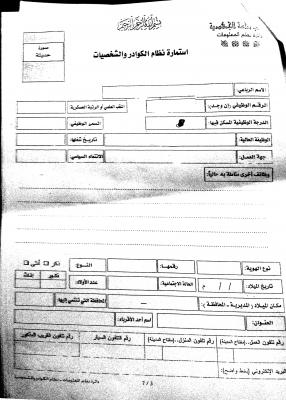 بسم الله الرحمن الرحيم
دائرة نظام المعلومات
صورة
حديثة
استمارة نظام الكوادر والشخصيات
الاسم الرباعي:
الرقم الوظيفي (إن وجد):
اللقب العلمي أو الرتبة العسكرية
الدرجة الوظيفية المسكن فيها:
المسمى الوظيفي:
الوظيفة الحالية:
تاريخ شغلها:
جهة العمل:
الانتماء السياسي:
وظائف أخرى مناطة به حالياً:
نوع الهوية:
رقمها:
النوع:
ذكر
أنثى
تاريخ الميلاد:
/ / م
الحالة الاجتماعية:
عدد الأولاد:
ذكور
إناث
مكان الميلاد (المديرية - المحافظة):
المحافظة التي تنتمي إليها:
العنوان:
اسم أحد الأقرباء:
رقم تلفون العمل (مفتاح المدينة)
رقم تلفون المنزل (مفتاح المدينة)
رقم التلفون السيار
رقم تلفون القريب المذكور
البريد الإلكتروني (بخط واضح):